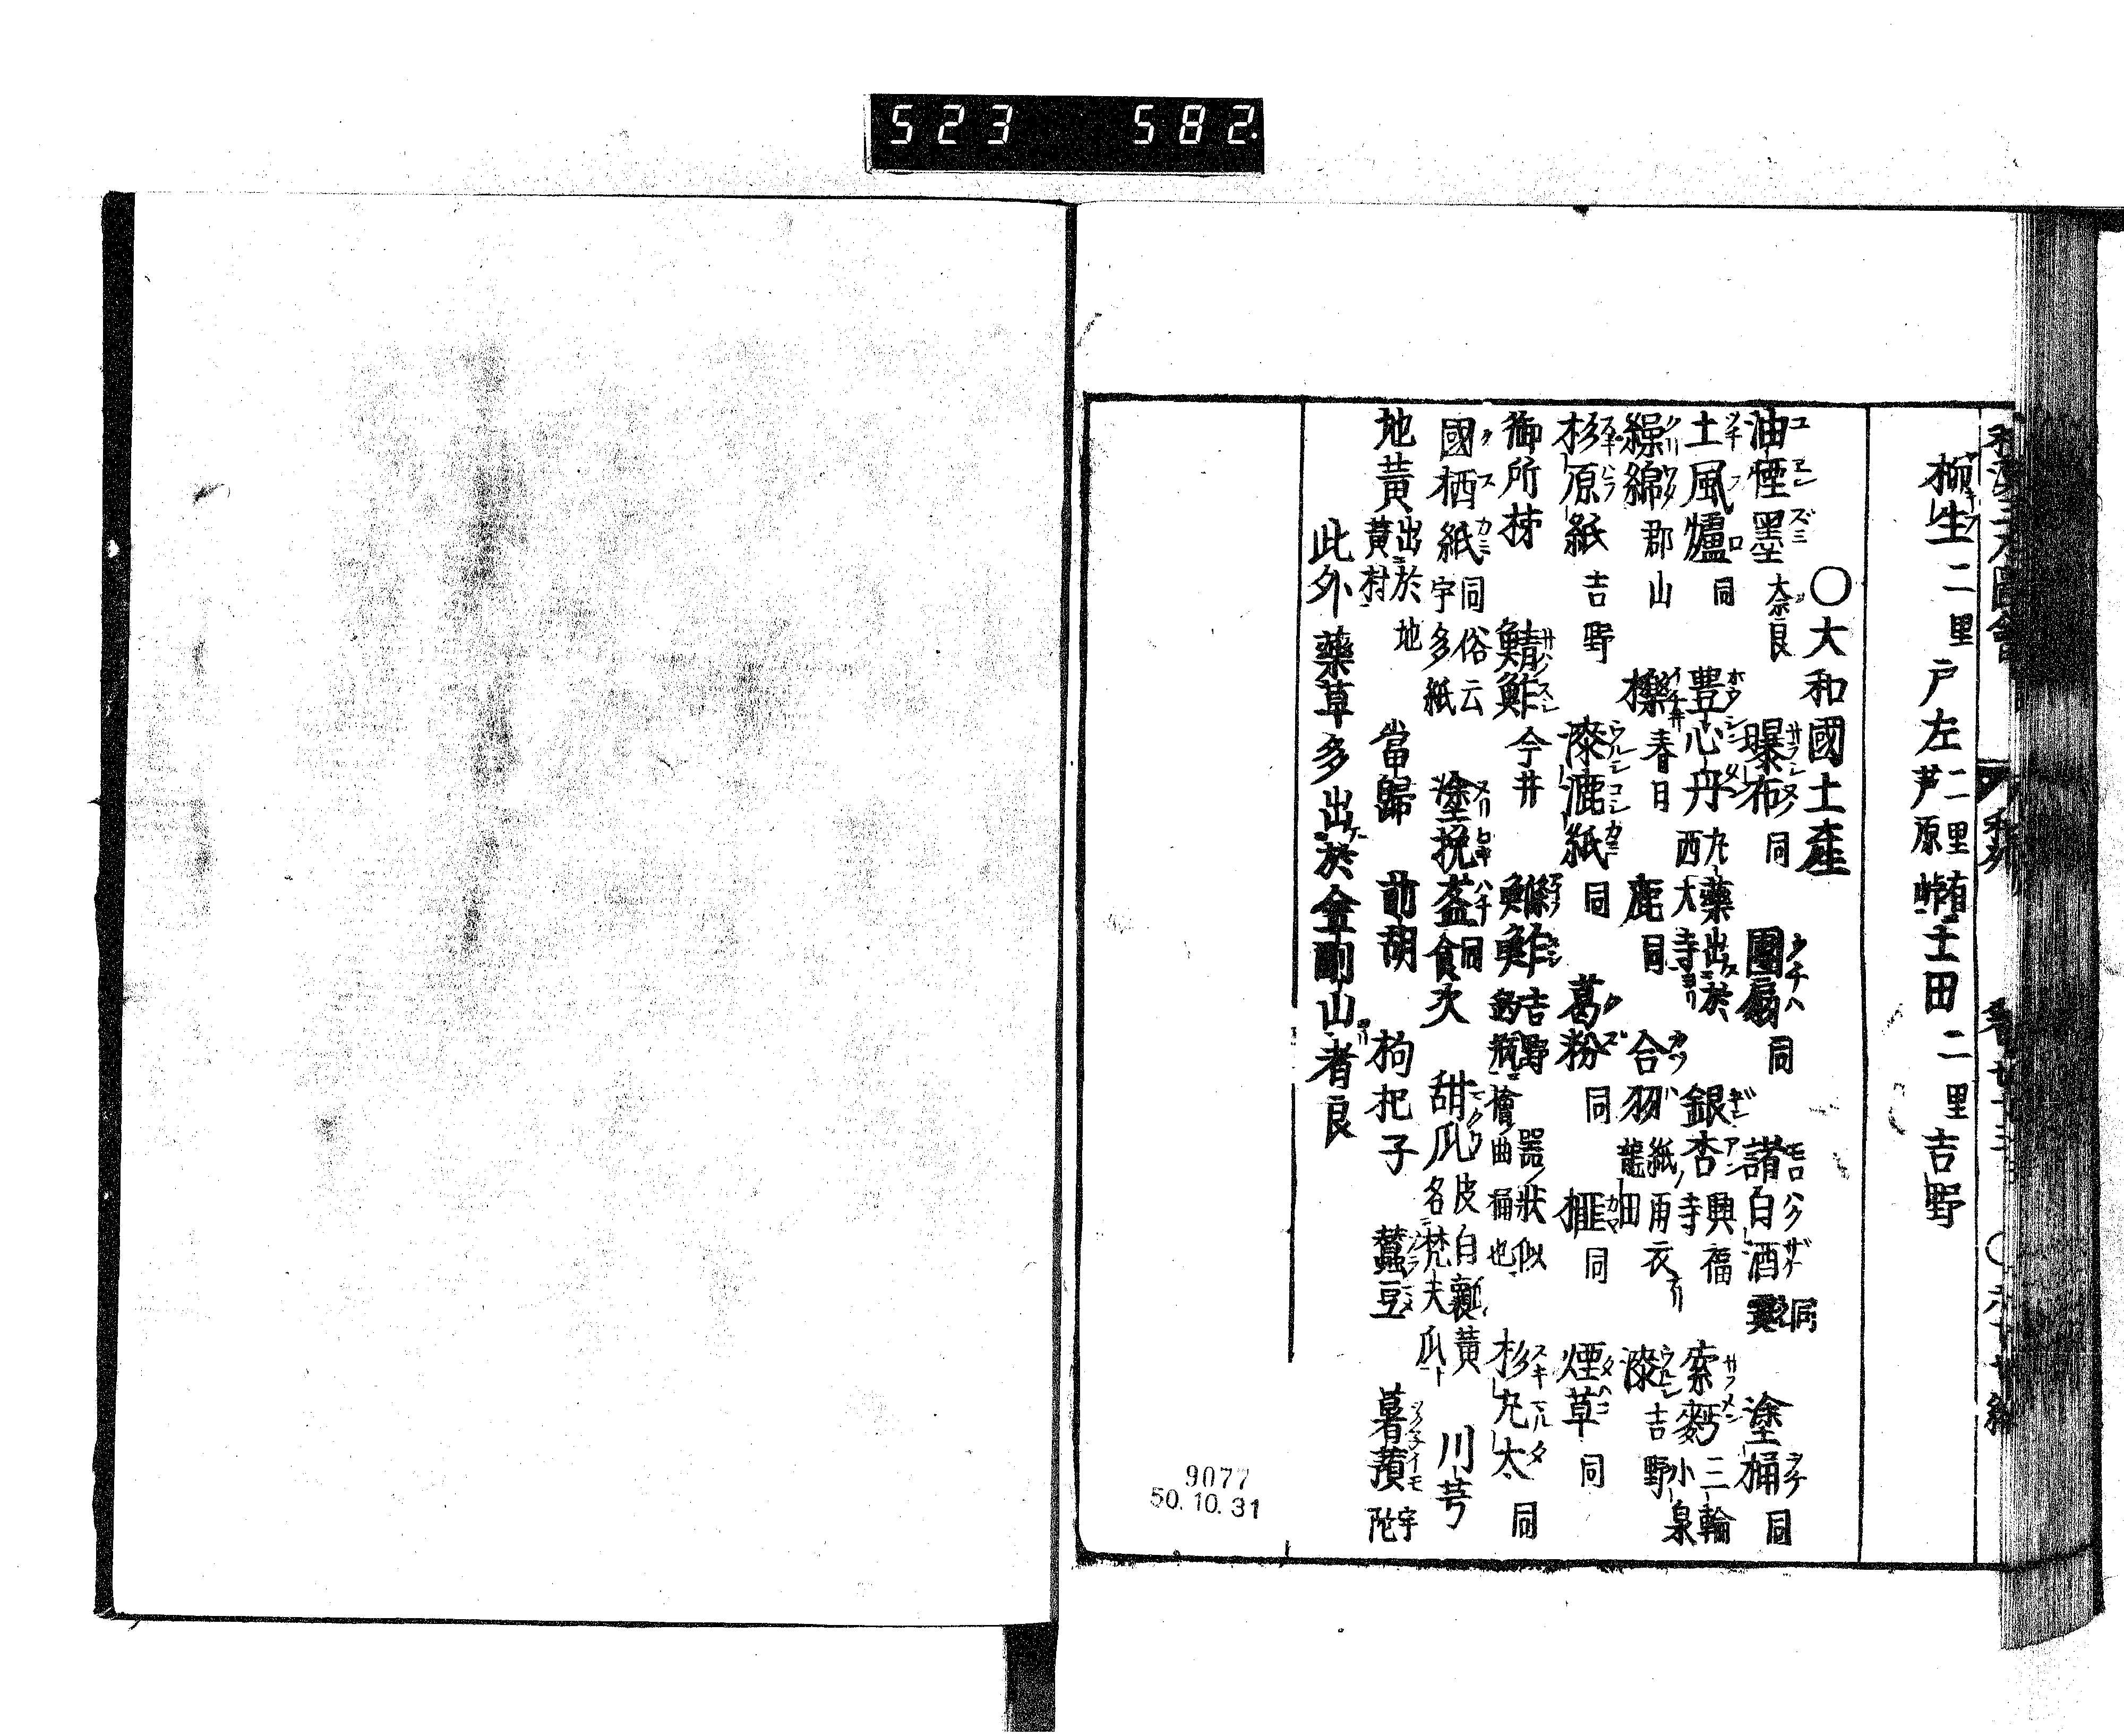 523 582
柳生 二里 戸左 二里 有芦原峠 土田 二里 吉野
〇大和國土產
油煙墨 奈良 曝布 同 團扇 同 諸白酒 同 塗桶 同
土風爐 同 豊心丹 丸藥出於西大寺 銀杏 興福寺 索麪 三輪小泉
繰綿 郡山 櫟 春日 鹿 同 合羽 紙雨衣龍田 漆 吉野
杉原紙 吉野 漆漉紙 同 葛粉 同 榧 同 煙草 同
御所柹 鯖鮓 今井 鰷鮓 吉野 釣瓶 器狀似檜曲桶也 杉丸太 同
國栖紙 同俗云宇多紙 塗挽盔 同 食次 甜瓜 皮白瓤黃名梵天瓜 川芎
地黃 出於地黃村 當歸 前胡 枸杞子 蠶豆 薯蕷 宇陀
此外藥草多出於金剛山者良
9077
50.10.31